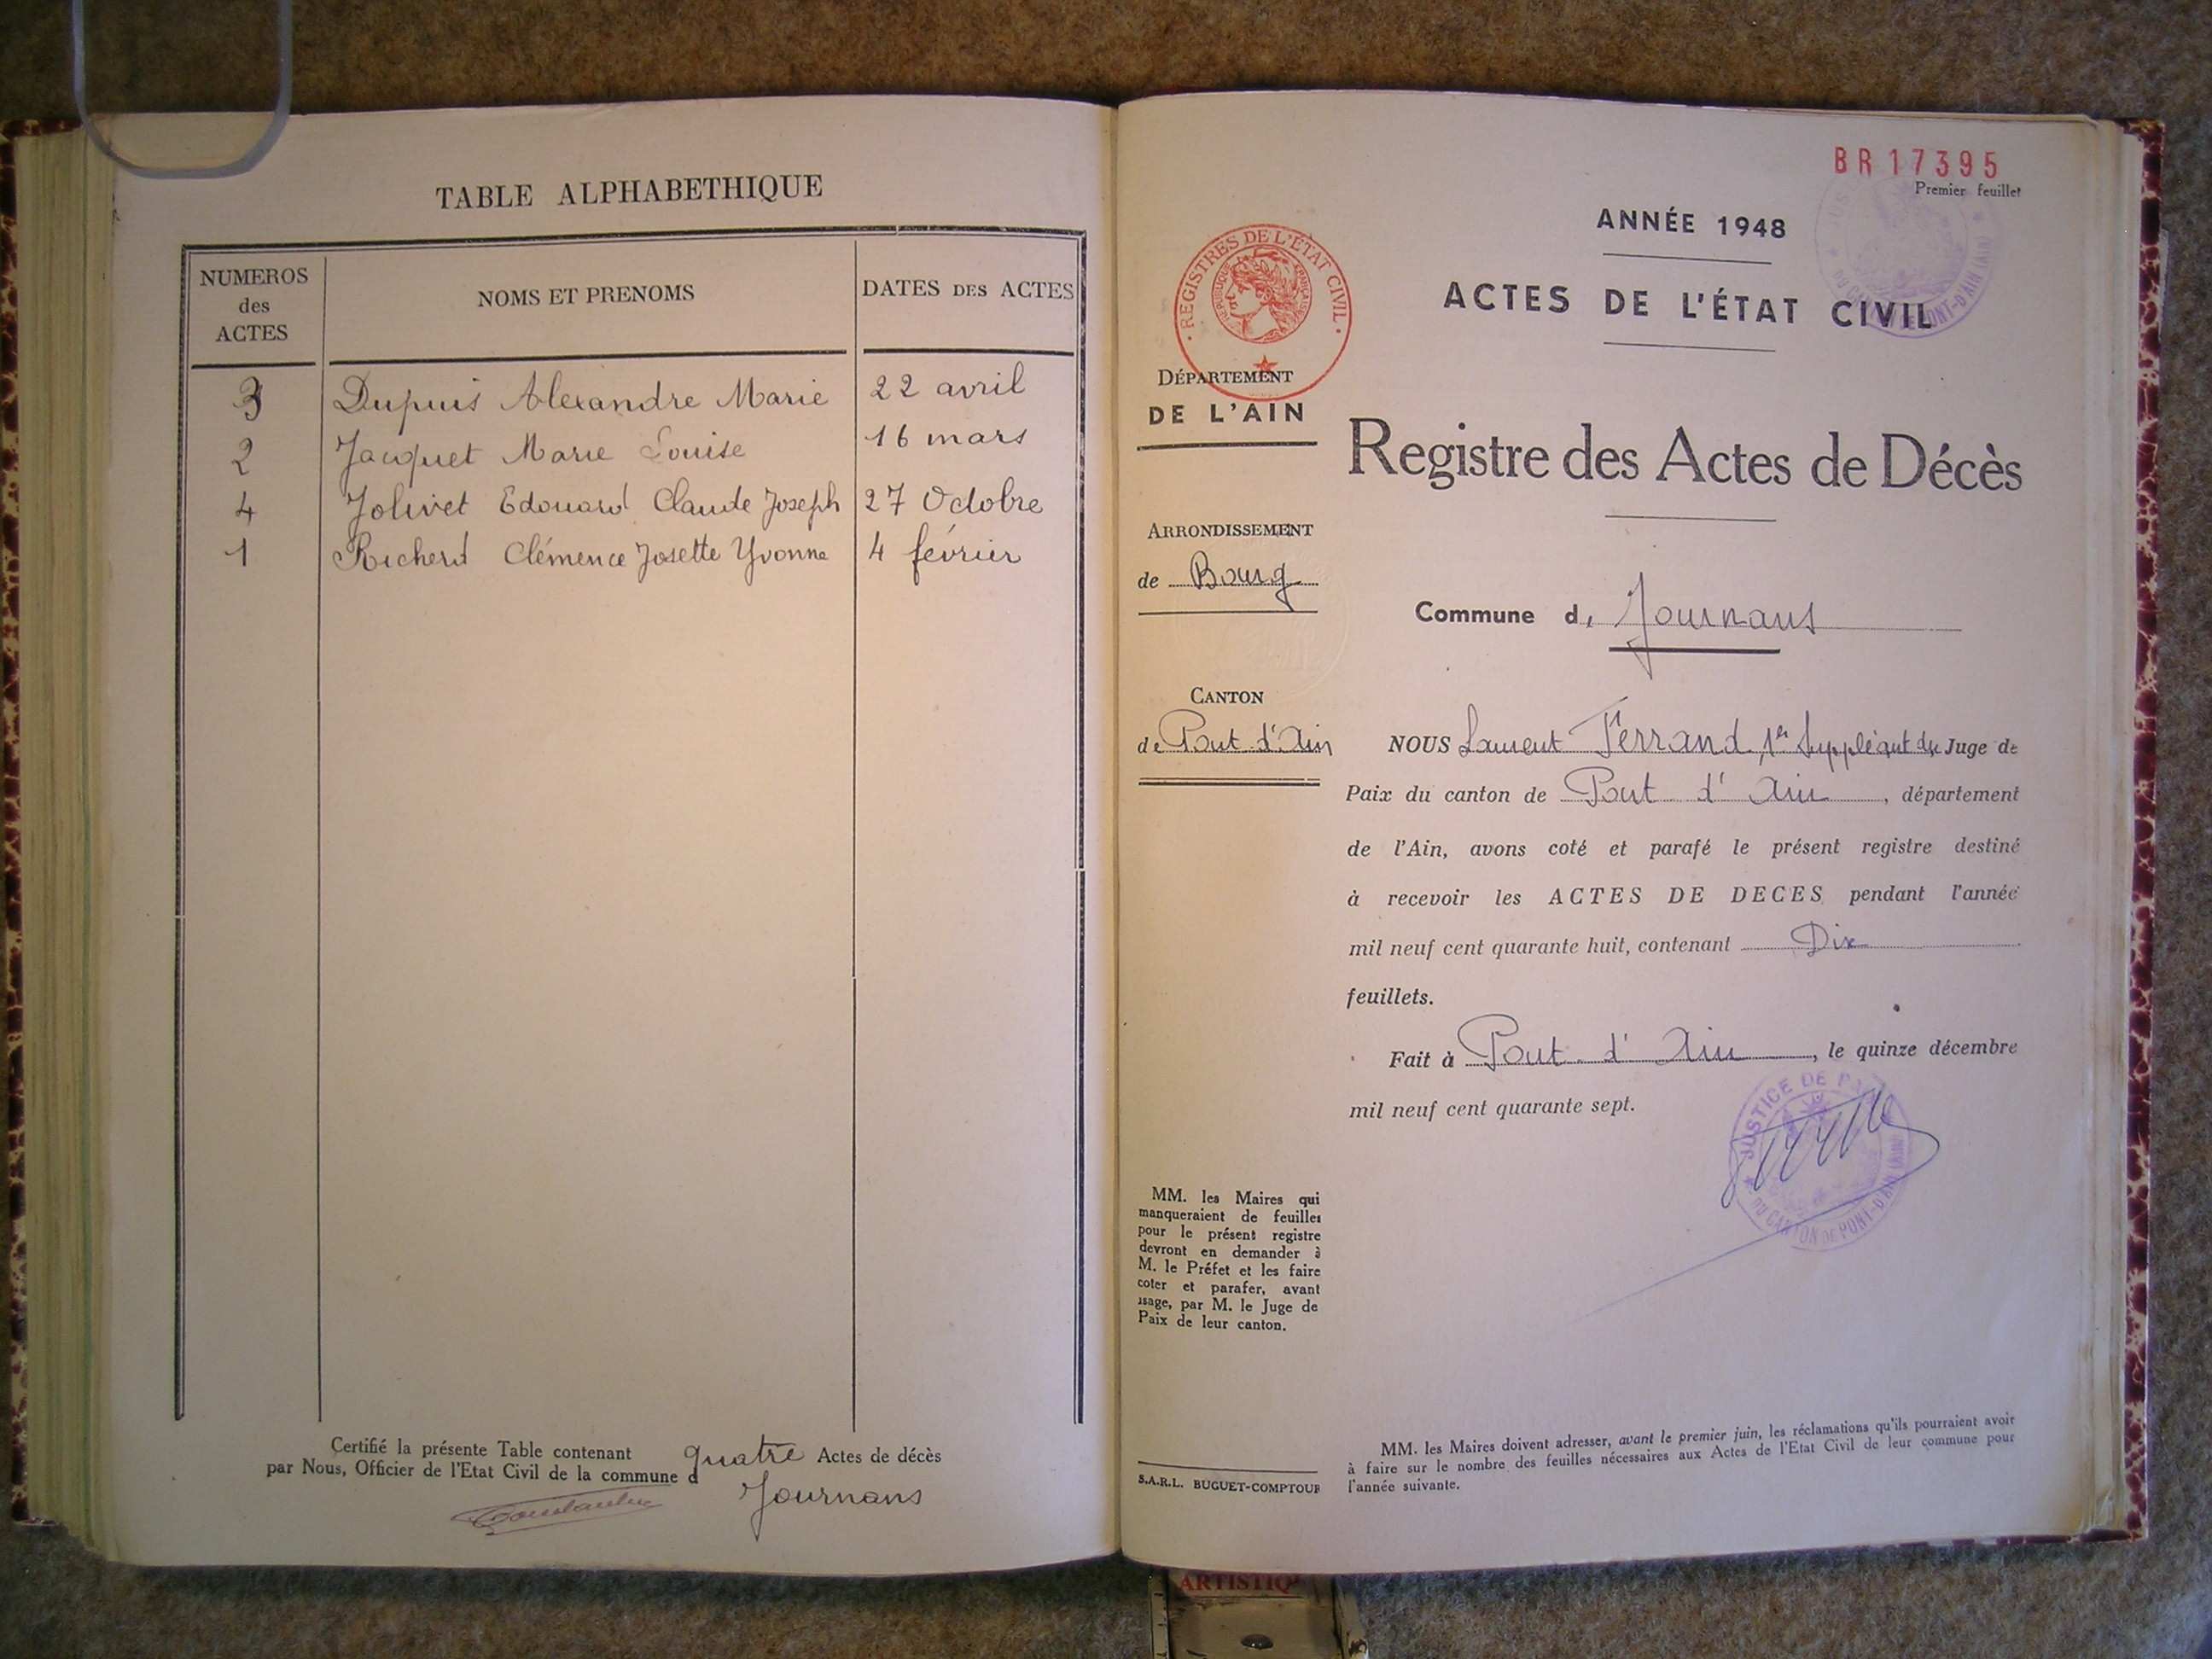 TABLE ALPHABETHIQUE
NUMEROS des ACTES
NOMS ET PRENOMS
DATES DES ACTES
3 Dupuis Alexandre Marie 22 avril
2 Jacquet Marie Louise 16 mars
4 Jolivet Edouard Claude Joseph 27 Octobre
1 Richerd Clémence Josette Yvonne 4 février
Certifié la présente Table contenant quatre Actes de décès
par Nous, Officier de l'Etat Civil de la commune d
Journans
BR17395
Premier feuillet
ANNÉE 1948
ACTES DE L'ÉTAT CIVIL
REGISTRES DE L'ÉTAT CIVIL
RÉPUBLIQUE FRANÇAISE
DÉPARTEMENT
DE L'AIN
Registre des Actes de Décès
ARRONDISSEMENT
de Bourg
Commune de Journans
CANTON
de Pont d'Ain
NOUS Laurent Ferrand 1er Suppléant du Juge de
Paix du canton de Pont d'Ain, département
de l'Ain, avons coté et parafé le présent registre destiné
à recevoir les ACTES DE DECES pendant l'année
mil neuf cent quarante huit, contenant Dix
feuillets.
Fait à Pont d'Ain, le quinze décembre
mil neuf cent quarante sept.
JUSTICE DE PAIX
DU CANTON DE PONT-D'AIN (AIN)
MM. les Maires qui
manqueraient de feuilles
pour le présent registre
devront en demander à
M. le Préfet et les faire
coter et parafer, avant
usage, par M. le Juge de
Paix de leur canton.
S.A.R.L. BUGUET-COMPTOUR
MM. les Maires doivent adresser, avant le premier juin, les réclamations qu'ils pourraient avoir
à faire sur le nombre des feuilles nécessaires aux Actes de l'Etat Civil de leur commune pour
l'année suivante.
ARTISTIQ